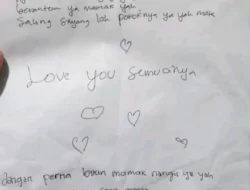 berantem ya mamak yah
Saling sayang lah pokoknya ya yah mak
Love you semuanya
dengan perna bikin mamak nangis ya yah